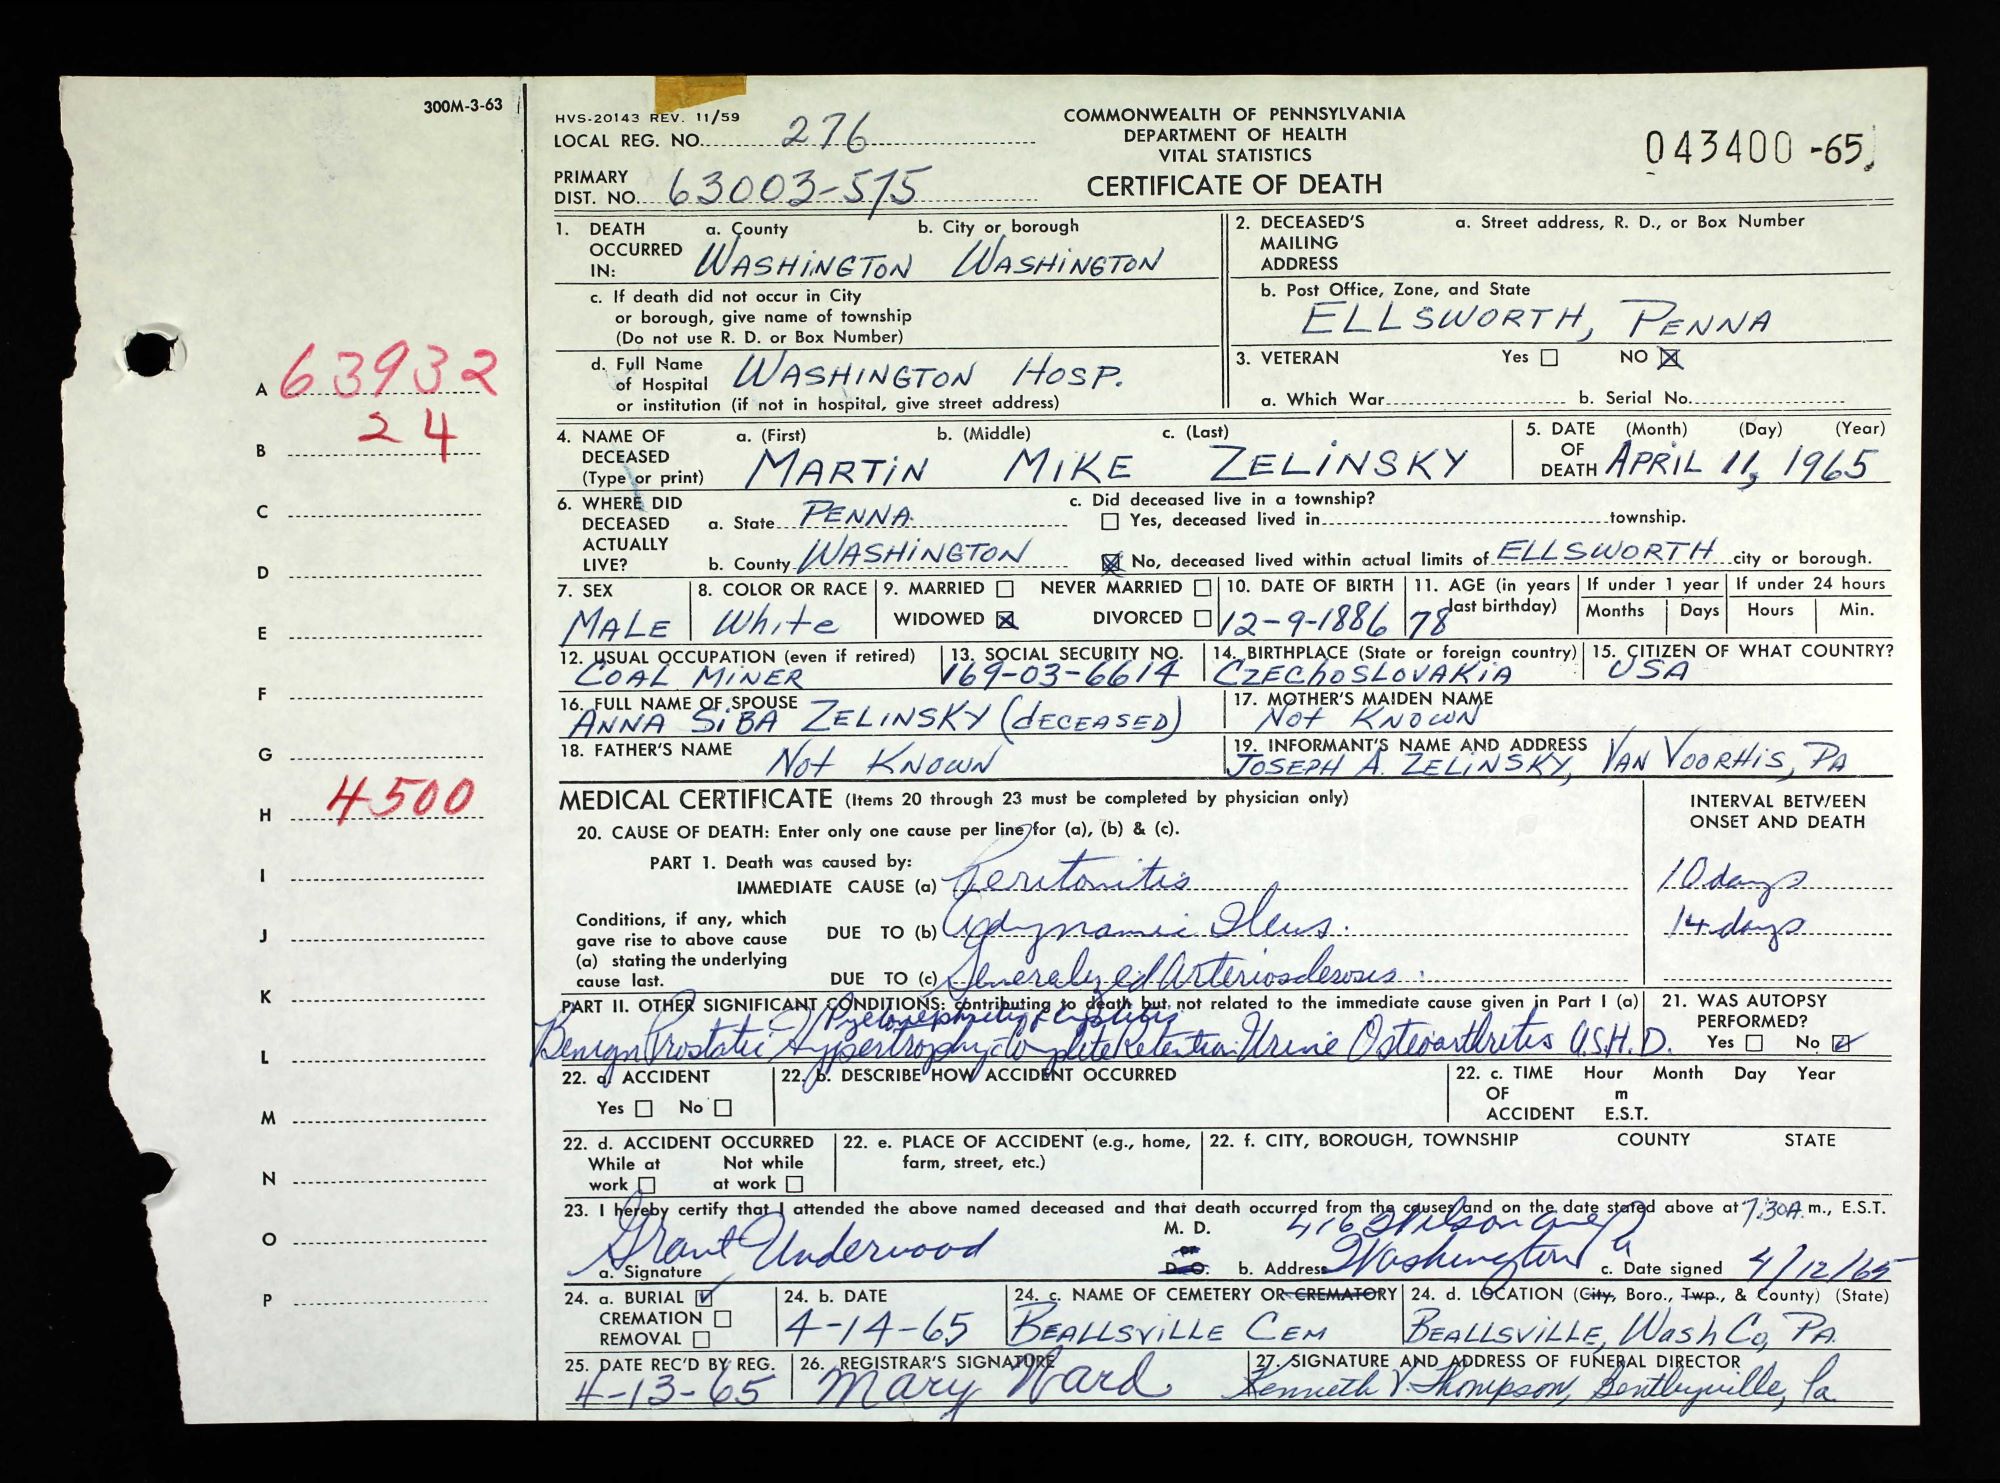 300M-3-63
HVS-20143 REV. 11/59
LOCAL REG. NO. 276
PRIMARY
DIST. NO. 63003-575
COMMONWEALTH OF PENNSYLVANIA
DEPARTMENT OF HEALTH
VITAL STATISTICS
CERTIFICATE OF DEATH
043400-65
A 63932
B 24
C
D
E
F
G
H 4500
I
J
K
L
M
N
O
P
1. DEATH OCCURRED IN: a. County b. City or borough
WASHINGTON WASHINGTON
c. If death did not occur in City
or borough, give name of township
(Do not use R. D. or Box Number)
d. Full Name
of Hospital WASHINGTON HOSP.
or institution (if not in hospital, give street address)
2. DECEASED'S MAILING ADDRESS a. Street address, R. D., or Box Number
b. Post Office, Zone, and State
ELLSWORTH, PENNA
3. VETERAN Yes NO
a. Which War b. Serial No.
4. NAME OF DECEASED (Type or print) a. (First) b. (Middle) c. (Last)
MARTIN MIKE ZELINSKY
5. DATE OF DEATH (Month) (Day) (Year)
APRIL 11, 1965
6. WHERE DID DECEASED ACTUALLY LIVE?
a. State PENNA
b. County WASHINGTON
c. Did deceased live in a township?
Yes, deceased lived in township.
No, deceased lived within actual limits of ELLSWORTH city or borough.
7. SEX
MALE
8. COLOR OR RACE
White
9. MARRIED NEVER MARRIED
WIDOWED DIVORCED
10. DATE OF BIRTH
12-9-1886
11. AGE (in years last birthday)
78
If under 1 year
Months Days
If under 24 hours
Hours Min.
12. USUAL OCCUPATION (even if retired)
COAL MINER
13. SOCIAL SECURITY NO.
169-03-6614
14. BIRTHPLACE (State or foreign country)
CZECHOSLOVAKIA
15. CITIZEN OF WHAT COUNTRY?
USA
16. FULL NAME OF SPOUSE
ANNA SIBA ZELINSKY (DECEASED)
17. MOTHER'S MAIDEN NAME
Not KNOWN
18. FATHER'S NAME
Not KNOWN
19. INFORMANT'S NAME AND ADDRESS
JOSEPH A. ZELINSKY, VAN VOORHIS, PA
MEDICAL CERTIFICATE (Items 20 through 23 must be completed by physician only)
INTERVAL BETWEEN
ONSET AND DEATH
20. CAUSE OF DEATH: Enter only one cause per line for (a), (b) & (c).
PART 1. Death was caused by:
IMMEDIATE CAUSE (a) Peritonitis 10 days
Conditions, if any, which
gave rise to above cause
(a) stating the underlying
cause last.
DUE TO (b) Adynamic Ileus. 14 days
DUE TO (c) Generalized Arteriosclerosis.
PART II. OTHER SIGNIFICANT CONDITIONS: contributing to death but not related to the immediate cause given in Part I (a)
Pyelonephritis & Cystitis
Benign Prostatic Hypertrophy Complete Retention Urine Osteoarthritis A.S.H.D.
21. WAS AUTOPSY
PERFORMED?
Yes No
22. a. ACCIDENT
Yes No
22. b. DESCRIBE HOW ACCIDENT OCCURRED
22. c. TIME Hour Month Day Year
OF m
ACCIDENT E.S.T.
22. d. ACCIDENT OCCURRED
While at Not while
work at work
22. e. PLACE OF ACCIDENT (e.g., home,
farm, street, etc.)
22. f. CITY, BOROUGH, TOWNSHIP COUNTY STATE
23. I hereby certify that I attended the above named deceased and that death occurred from the causes and on the date stated above at 7:30A. m., E.S.T.
Grant Underwood
a. Signature
M. D.
or
D. O.
416 Wilson Ave
b. Address Washington Pa
c. Date signed 4/12/65
24. a. BURIAL
CREMATION
REMOVAL
24. b. DATE
4-14-65
24. c. NAME OF CEMETERY OR CREMATORY
BEALLSVILLE CEM
24. d. LOCATION (City, Boro., Twp., & County) (State)
BEALLSVILLE, Wash Co, PA.
25. DATE REC'D BY REG.
4-13-65
26. REGISTRAR'S SIGNATURE
Mary Ward
27. SIGNATURE AND ADDRESS OF FUNERAL DIRECTOR
Kenneth V. Thompson, Bentleyville, Pa.